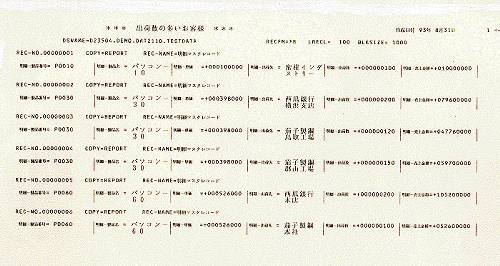 ＊＊＊ 出荷数の多いお客様 ＊＊＊ 作成日付 93年 8月31日 1
DSNAME=D23504.DEMO.DAT2110.TESTDATA RECFM=FB LRECL= 100 BLKSIZE= 1000
REC-NO.00000001 COPY=REPORT REC-NAME=明細マスタレコード
明細-製品番号= PD010 明細-製品名 = パソコン－ 明細-単価 =+000100000 明細-出荷先 = 密柑インダ 明細-出荷数 =+000000100 明細-売上金額=+010000000
10 ストリー
REC-NO.00000002 COPY=REPORT REC-NAME=明細マスタレコード
明細-製品番号= PD030 明細-製品名 = パソコン－ 明細-単価 =+000398000 明細-出荷先 = 西瓜銀行 明細-出荷数 =+000000200 明細-売上金額=+079600000
30 横浜支店
REC-NO.00000003 COPY=REPORT REC-NAME=明細マスタレコード
明細-製品番号= PD030 明細-製品名 = パソコン－ 明細-単価 =+000398000 明細-出荷先 = 茄子製鋼 明細-出荷数 =+000000120 明細-売上金額=+047760000
30 鳥取工場
REC-NO.00000004 COPY=REPORT REC-NAME=明細マスタレコード
明細-製品番号= PD030 明細-製品名 = パソコン－ 明細-単価 =+000398000 明細-出荷先 = 茄子製鋼 明細-出荷数 =+000000150 明細-売上金額=+059700000
30 郡山工場
REC-NO.00000005 COPY=REPORT REC-NAME=明細マスタレコード
明細-製品番号= PD060 明細-製品名 = パソコン－ 明細-単価 =+000526000 明細-出荷先 = 西瓜銀行 明細-出荷数 =+000000200 明細-売上金額=+105200000
60 本店
REC-NO.00000006 COPY=REPORT REC-NAME=明細マスタレコード
明細-製品番号= PD060 明細-製品名 = パソコン－ 明細-単価 =+000526000 明細-出荷先 = 茄子製鋼 明細-出荷数 =+000000100 明細-売上金額=+052600000
60 本社